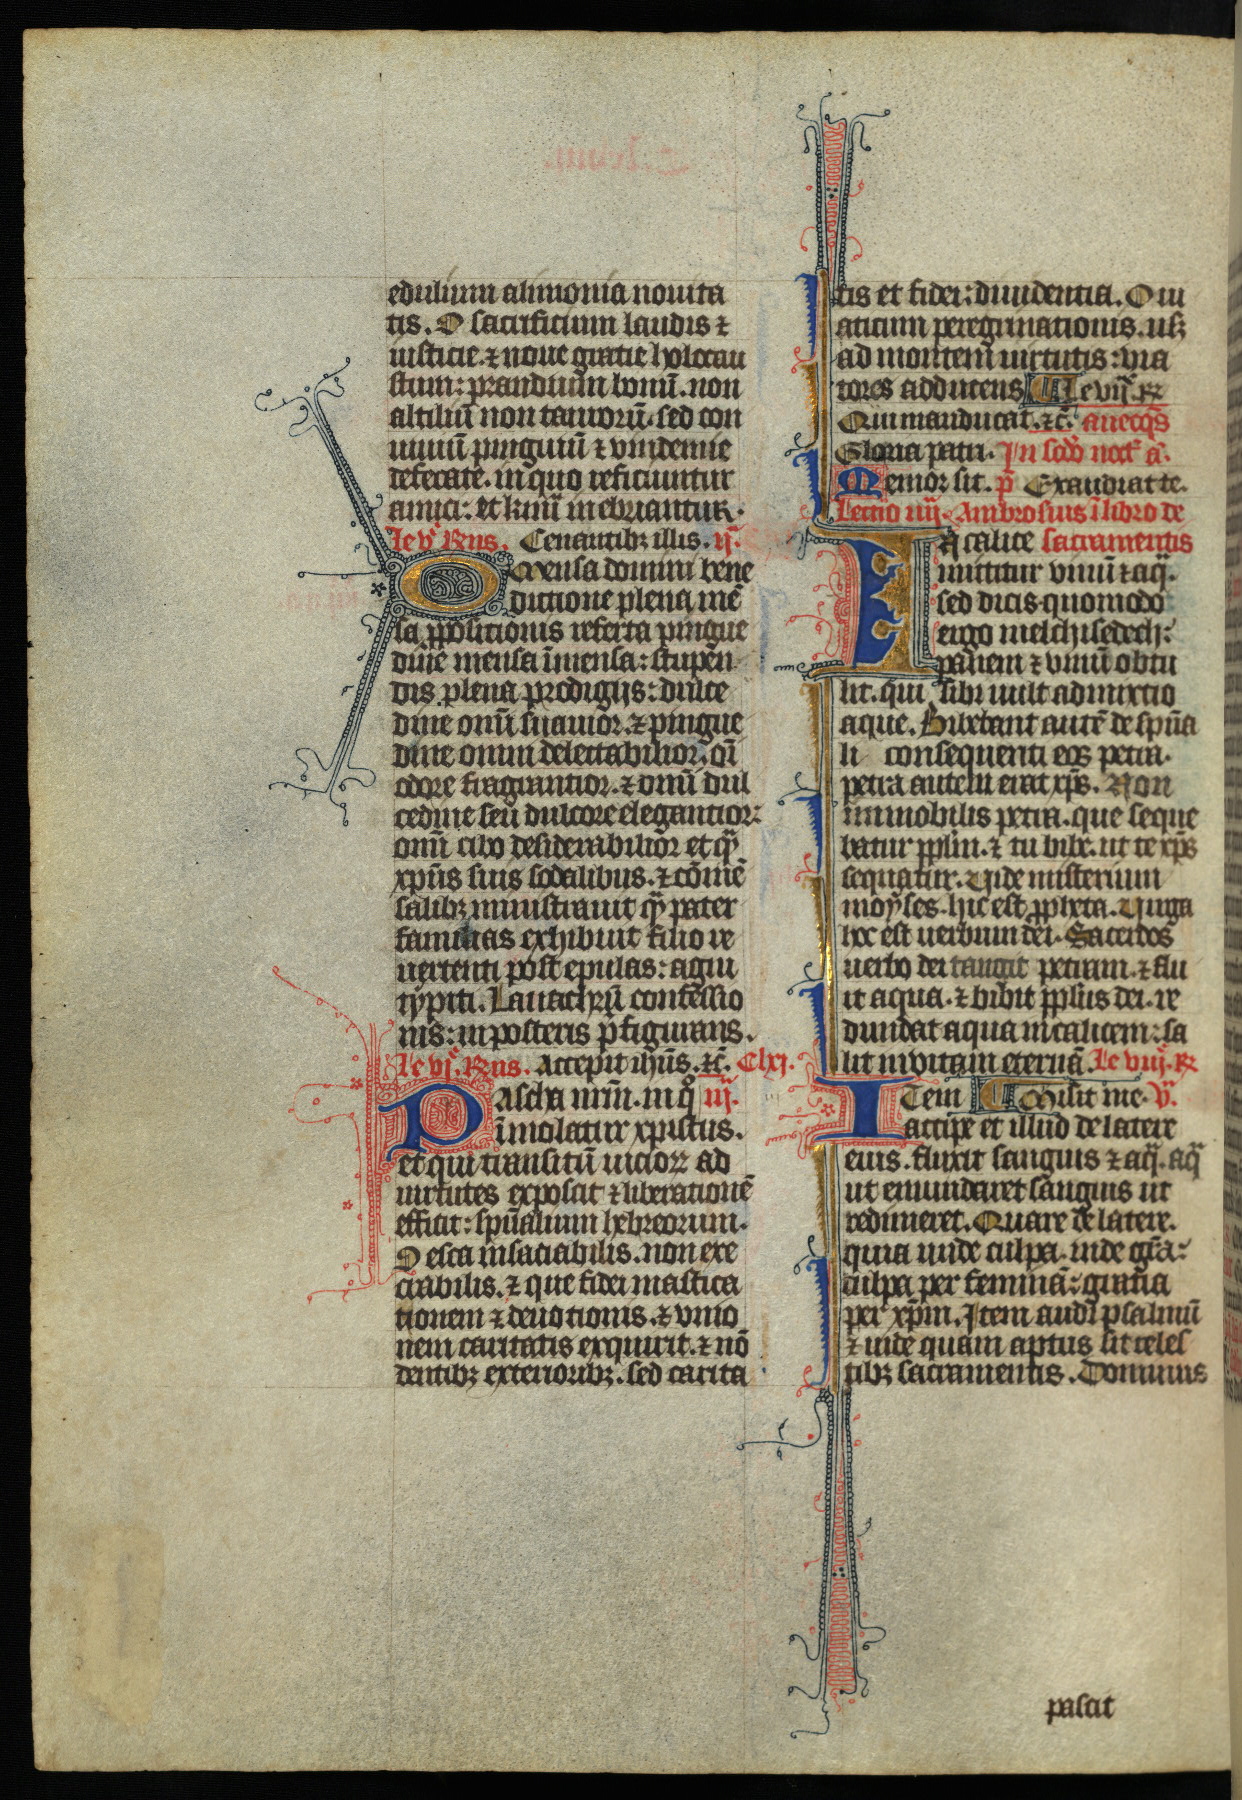 edulium alimonia nouita
tis. O sacrificium laudis ⁊
iusticie. ⁊ noue gratie holocau
stum: prandium bonū. non
altiliū non taurorū. sed con
uiuiū pinguiū ⁊ vindemie
defecate. in quo reficiuntur
amici: et kmi inebriantur.
le v. Rus. Cenantibꝫ illis. ij.
O Mensa domini bene
dictione plena mē
sa ꝓpolitionis referta pingue
dine mensa īmensa: stupen
dis plena prodigijs: dulce
dine omī suauior. ⁊ pingue
dine omni delectabilior. oī
odore fragrantior. ⁊ omī dul
cedine seu dulcore elegantior:
omī cibo desiderabilior et qͣ
xpūs suis sodalibus. ⁊ cōmē
salibꝫ ministrauit qͣ pater
familias exhibuit filio re
uertenti post epulas: agni
typici. Lauachrū confessio
nis: in posteris p̄figurans.
le vj. Rus. Accepit ihūs. ⁊c̄. Clxj.
Pascha nrm̄. in qͦ iij.
īmolatur xpistus.
et qui transitū uicior̄ ad
uirtutes exposcit ⁊ liberationē
efficit: spūalium hebreorum.
O esca insaciabilis. non exe
crabilis. ⁊ que fidei mastica
tionem ⁊ deuotionis. ⁊ vnio
nem caritatis exquirit. ⁊ nō
dentibꝫ exterioribꝫ. sed carita
tis et fidei: diuidentia. O ui
aticum peregrinationis. usꝫ
ad montem uirtutis: via
tores adducens le vij. R̄
Qui manducat. ⁊c̄.
Gloria patri. Jn scd̄o noct̄ a.
Memor sit. p̄ Exaudiat te.
Lectio iiij. Ambrosius ī libro de
In calice sacramentis
mittitur vinū ⁊ aq̄.
sed dicis quomodo
ergo melchisedech:
panem ⁊ vinū obtu
lit. qui sibi uult admixtio
aque. Bibebant autē de spūa
li consequenti eos petra.
petra autem erat xp̄s. Non
immobilis petra. que seque
batur pplm̄. ⁊ tu bibe. ut te xp̄s
sequatur. Vide misterium
moyses. hic est ꝓpheta. Virga
hoc est uerbum dei. Sacerdos
uerbo dei tangit petram. ⁊ flu
it aqua. ⁊ bibit pplus dei. re
dundat aqua in calicem: sa
lit in vitam eternā. le viij. R̄
Item Misit me. V̄.
accipe et illud de latere
eius. fluxit sanguis ⁊ aq̄. aq̄
ut emundaret sanguis ut
redimeret. Quare de latere.
quia unde culpa. inde grā:
culpa per feminā: gratia
per xp̄m. Jtem audi psalmū
⁊ uide quam aptus sit celes
tibꝫ sacramentis. Dominus
pascit